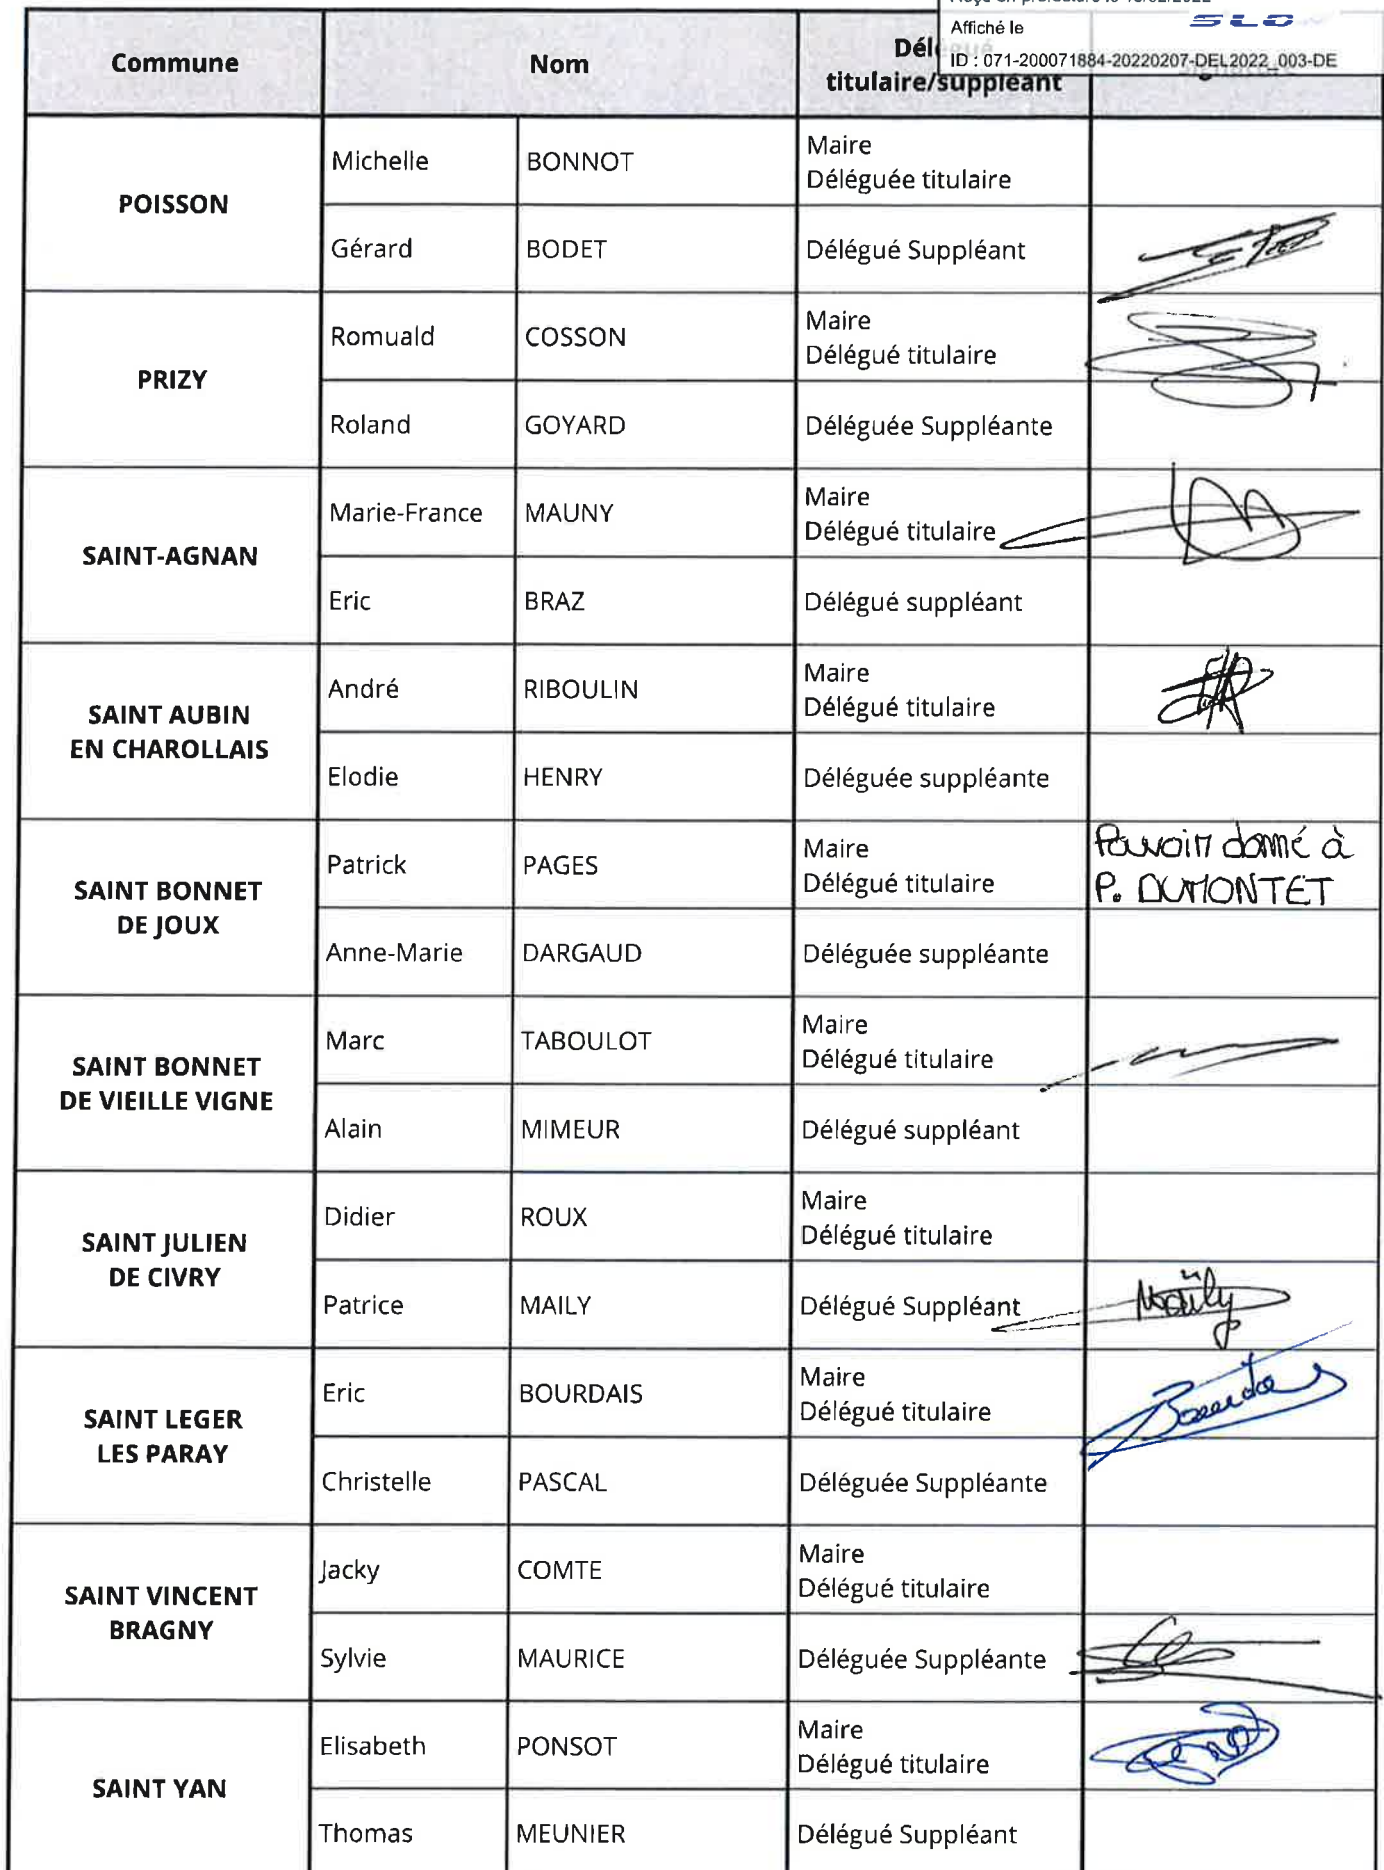 Affiché le
SLO
ID : 071-200071884-20220207-DEL2022_003-DE
Commune
Nom
titulaire/suppléant
POISSON
Michelle BONNOT
Maire
Déléguée titulaire
Gérard BODET Délégué Suppléant
PRIZY
Romuald COSSON
Maire
Délégué titulaire
Roland GOYARD Déléguée Suppléante
SAINT-AGNAN
Marie-France MAUNY
Maire
Délégué titulaire
Eric BRAZ Délégué suppléant
SAINT AUBIN
EN CHAROLLAIS
André RIBOULIN
Maire
Délégué titulaire
Elodie HENRY Déléguée suppléante
SAINT BONNET
DE JOUX
Patrick PAGES
Maire
Délégué titulaire
Pouvoir donné à
P. DUMONTET
Anne-Marie DARGAUD Déléguée suppléante
SAINT BONNET
DE VIEILLE VIGNE
Marc TABOULOT
Maire
Délégué titulaire
Alain MIMEUR Délégué suppléant
SAINT JULIEN
DE CIVRY
Didier ROUX
Maire
Délégué titulaire
Patrice MAILY Délégué Suppléant
Maïly
SAINT LEGER
LES PARAY
Eric BOURDAIS
Maire
Délégué titulaire
Christelle PASCAL Déléguée Suppléante
SAINT VINCENT
BRAGNY
Jacky COMTE
Maire
Délégué titulaire
Sylvie MAURICE Déléguée Suppléante
SAINT YAN
Elisabeth PONSOT
Maire
Délégué titulaire
Thomas MEUNIER Délégué Suppléant